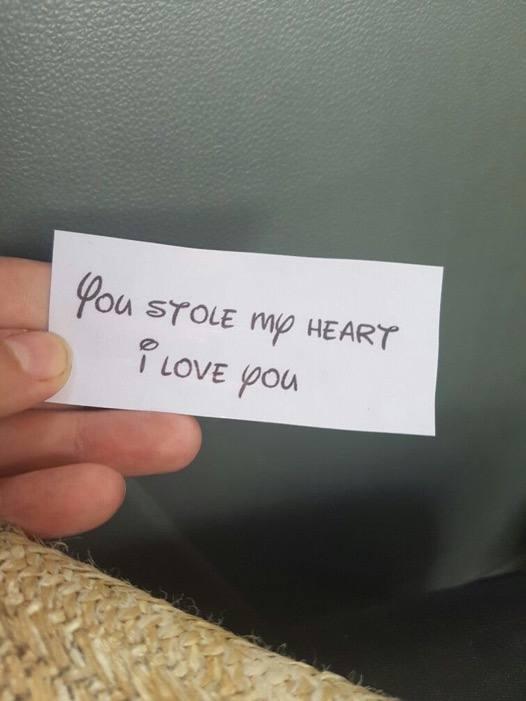 You STOLE my HEART
i LOVE you